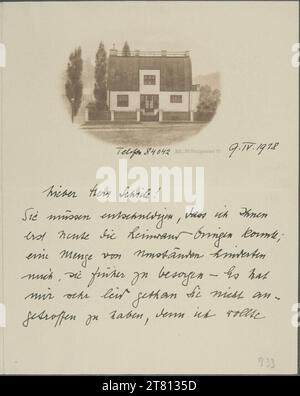 Telefon 84042
9.IV.1918
Lieber Herr Schiele!
Sie müssen entschuldigen, dass ich Ihnen
erst heute die Leinwand bringen konnte;
eine Menge von Umständen hinderten
mich, sie früher zu besorgen – Es hat
mir sehr leid gethan Sie nicht an-
getroffen zu haben, denn ich wollte
933
alamy
Image ID: 2T8135D
www.alamy.com